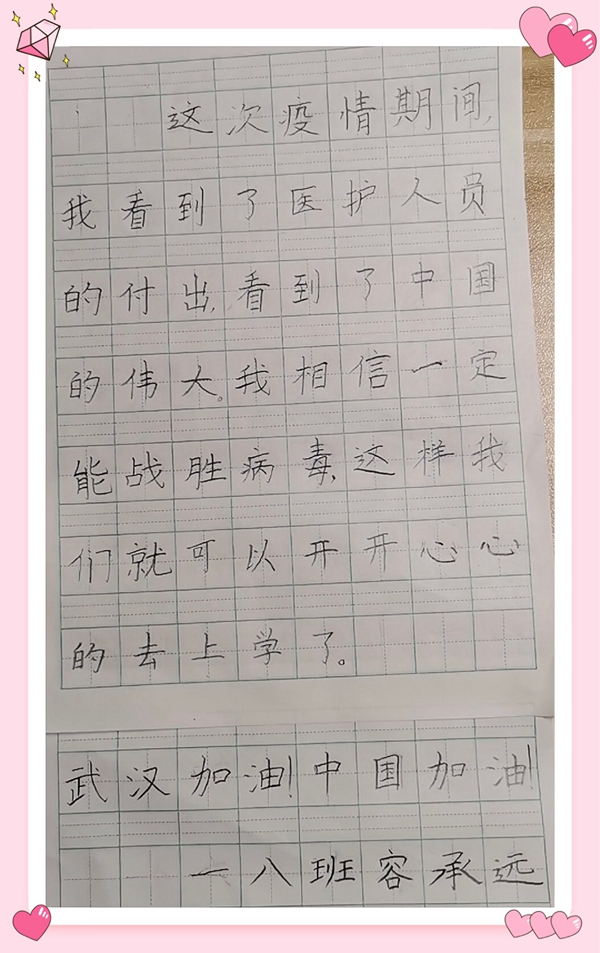 这次疫情期间,
我看到了医护人员
的付出,看到了中国
的伟大。我相信一定
能战胜病毒,这样我
们就可以开开心心
的去上学了。
武汉加油!中国加油!
一八班容承远